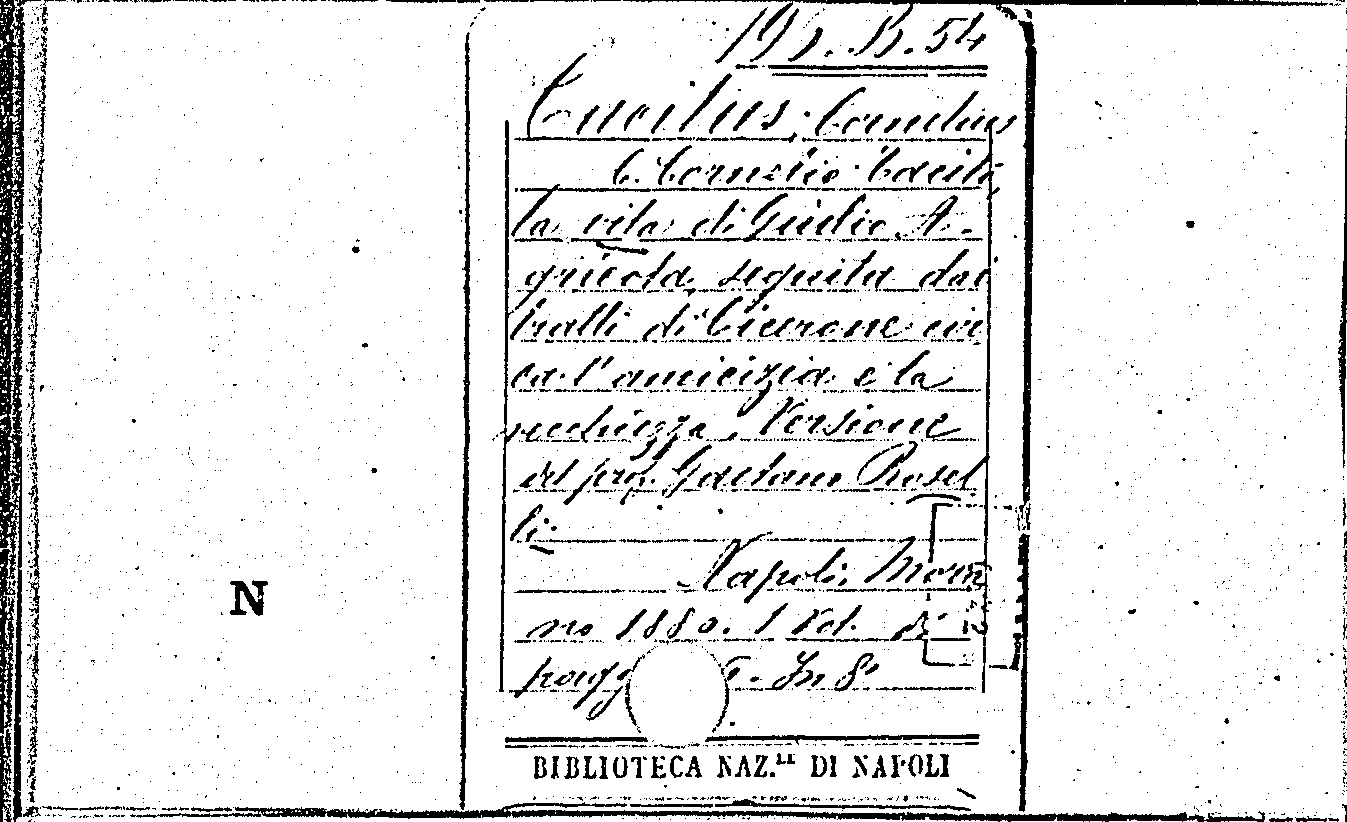 B. 54
Tacitus, Cornelius
C. Cornelio Tacito,
la vita di Giulio A-
gricola, seguita dai
tratti di Cicerone cir
ca l'amicizia e la
vecchiezza. Versione
del prof. Gaetano Rosel
li.
Napoli, Mora
no 1880. 1 Vol. di
pagg In 8°
N
BIBLIOTECA NAZ.LE DI NAPOLI